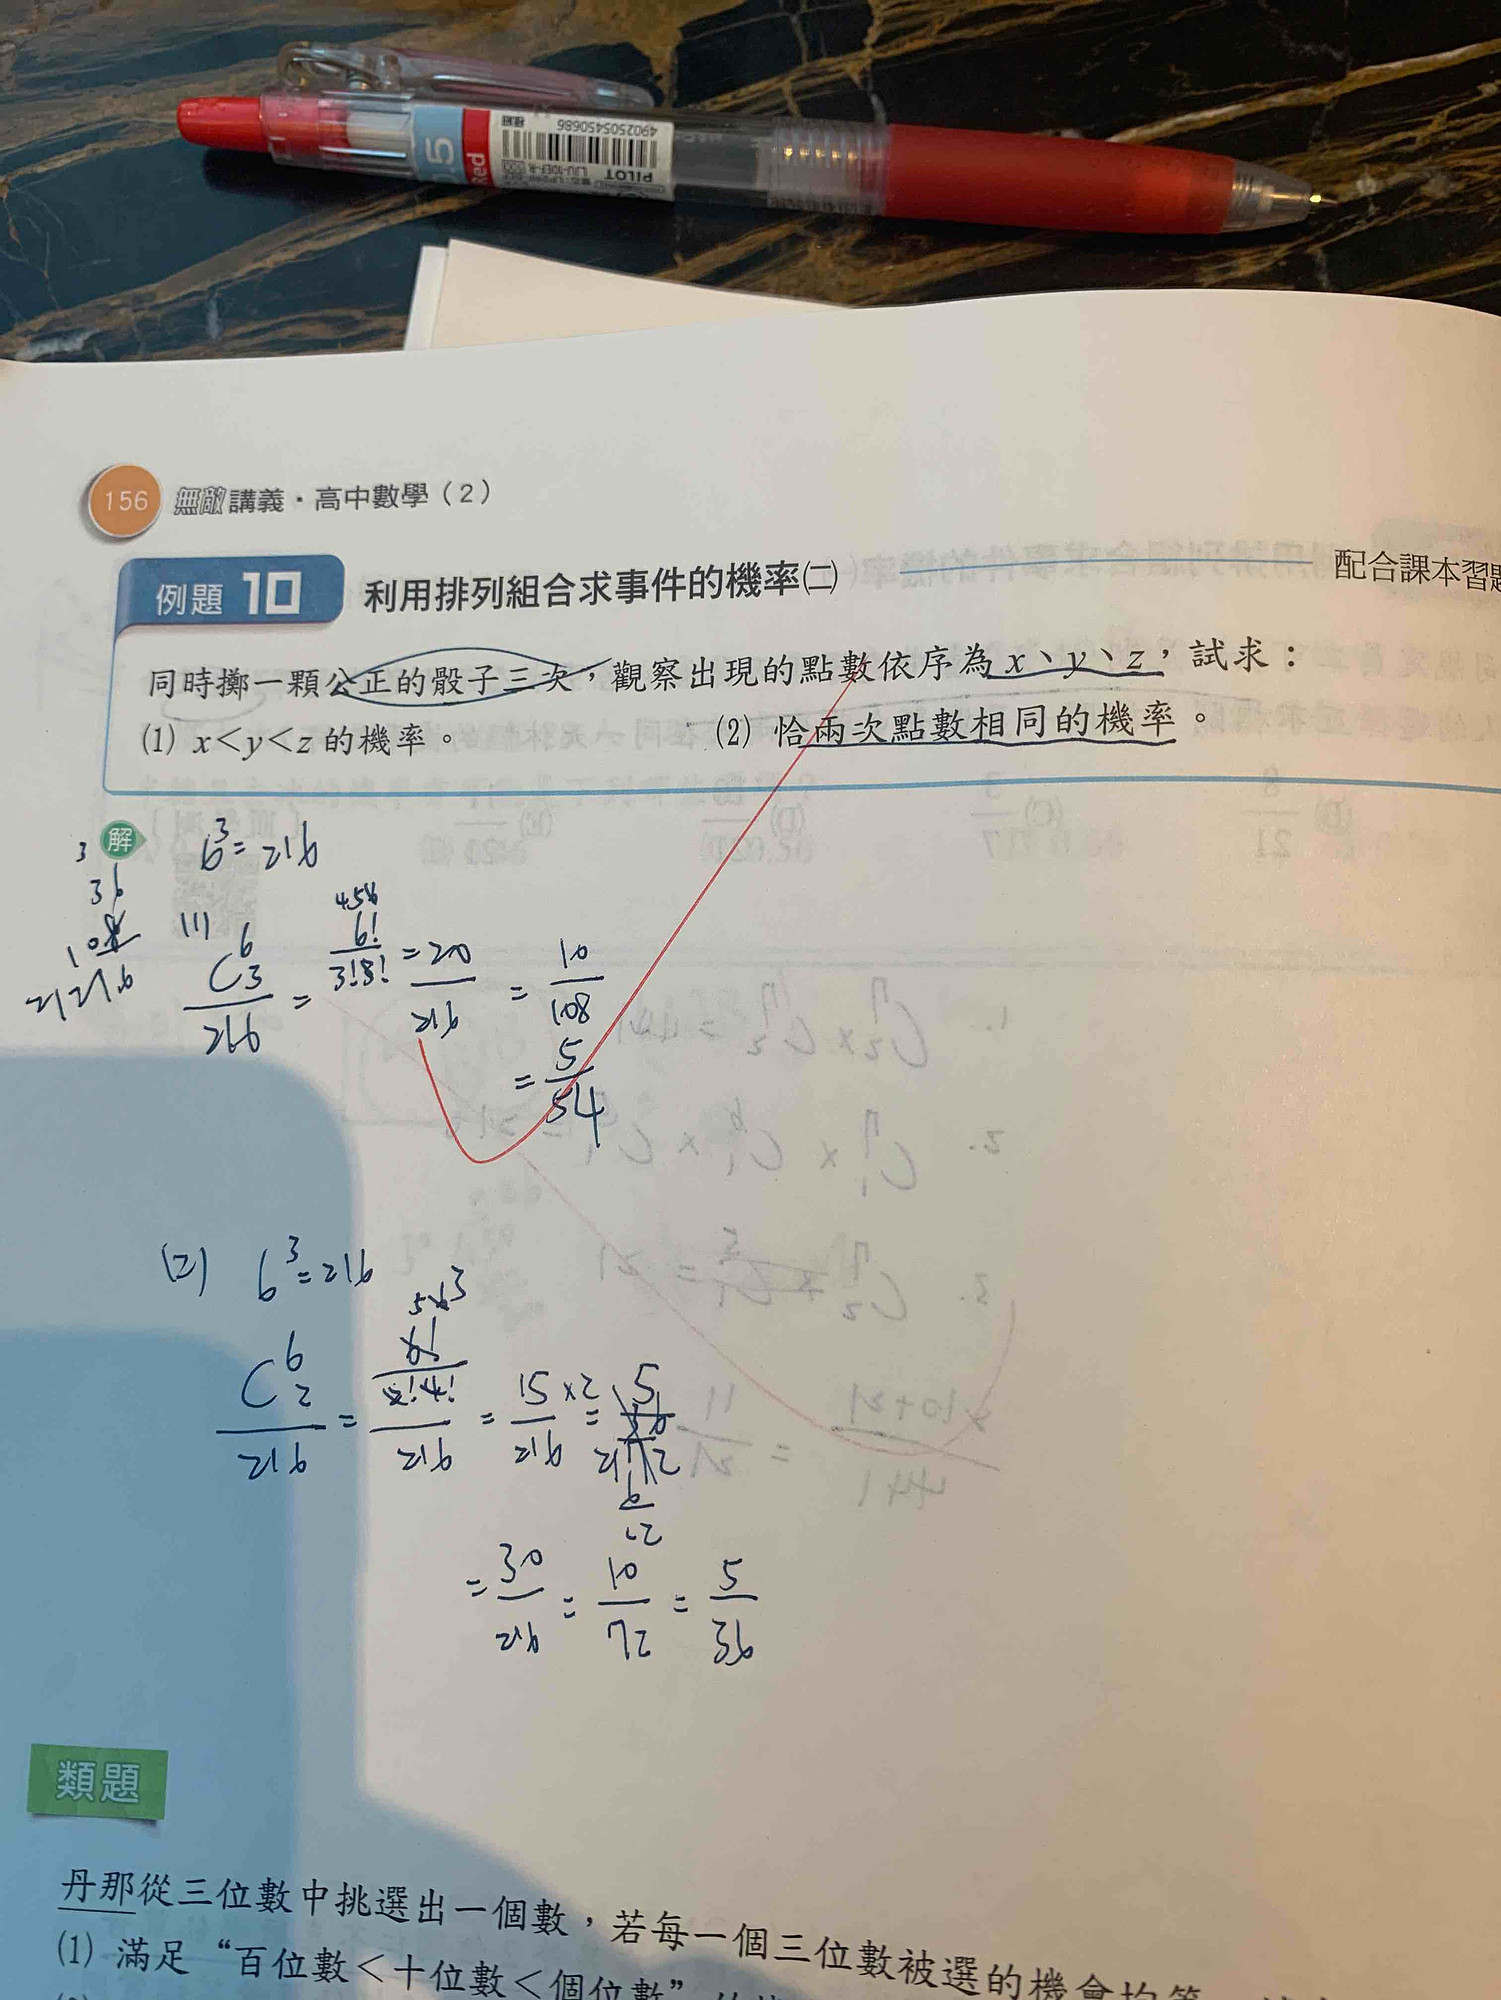 0.5
Red
4902505450686
PILOT
156 無敵講義·高中數學(2)
例題 10 利用排列組合求事件的機率(二) 配合課本習題
同時擲一顆公正的骰子三次,觀察出現的點數依序為 x、y、z,試求:
(1) x<y<z 的機率。 (2) 恰兩次點數相同的機率。
解 6³=216
3
36
108
216
(1) C⁶₃/216 = 6!/3!3! = 20/216 = 10/108
= 5/54
(2) 6³=216
C⁶₂/216 = 6!/2!4!/216 = 15/216 ×2 =
= 30/216 = 10/72 = 5/36
類題
丹那從三位數中挑選出一個數,若每一個三位數被選的機會均等
(1) 滿足“百位數<十位數<個位數”的